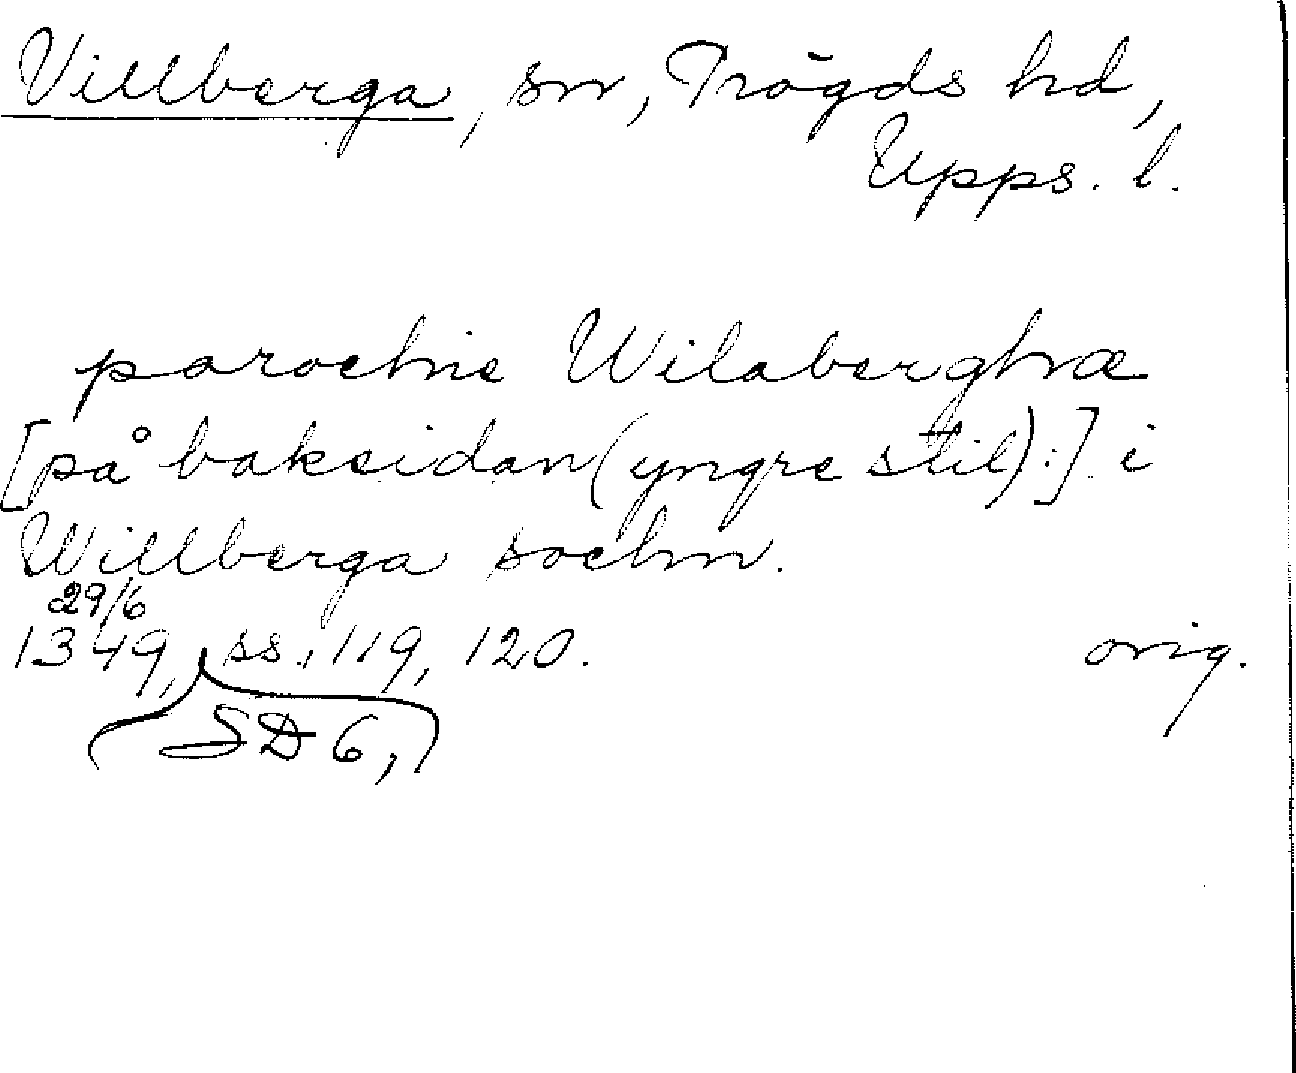 Villberga, sn, Trögds hd,
Upps. l.
parochie Wilaberghæ
[på baksidan (yngre stil):] i
Willberga sochn.
29/6
1349, ss. 119, 120. orig.
SD 6,